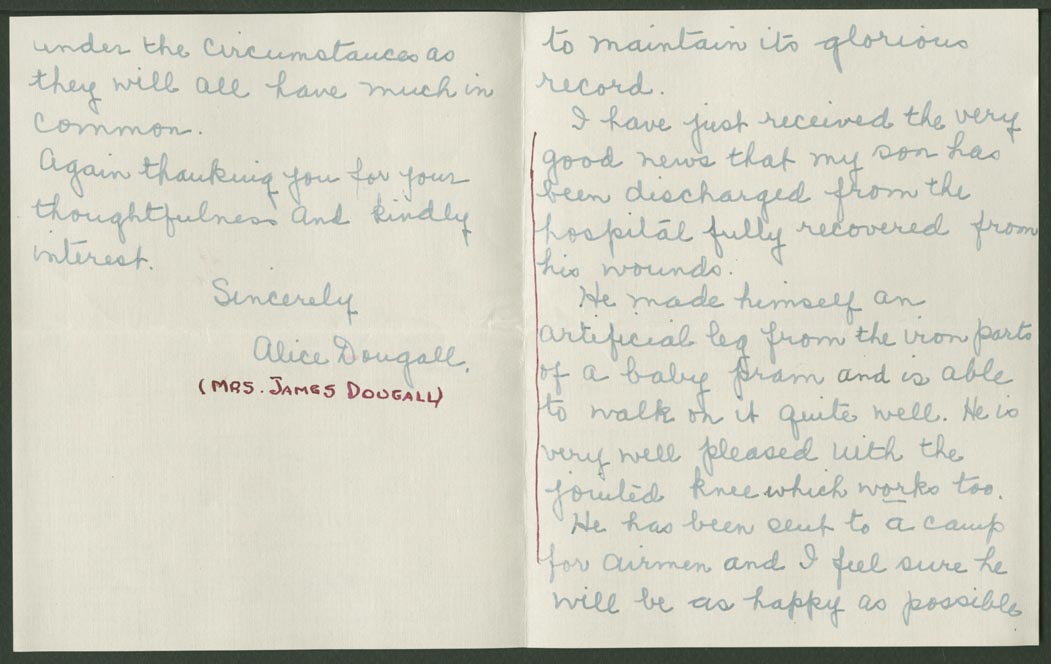 under the circumstances as
they will all have much in
common.
Again thanking you for your
thoughtfulness and kindly
interest.
Sincerely
Alice Dougall.
(MRS. JAMES DOUGALL)
to maintain its glorious
record.
I have just received the very
good news that my son has
been discharged from the
hospital fully recovered from
his wounds.
He made himself an
artificial leg from the iron parts
of a baby pram and is able
to walk on it quite well. He is
very well pleased with the
jointed knee which works too.
He has been sent to a camp
for airmen and I feel sure he
will be as happy as possible